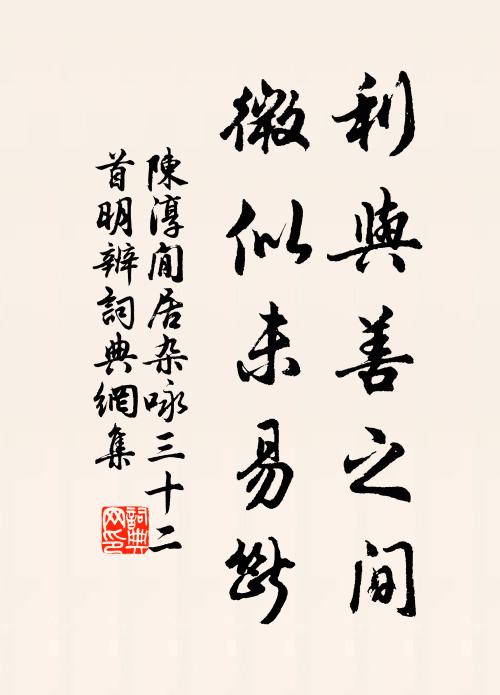 利與善之間
微似未易斷
陳淳閒居杂咏三十二
首明辨詞典網集
詞典
网印